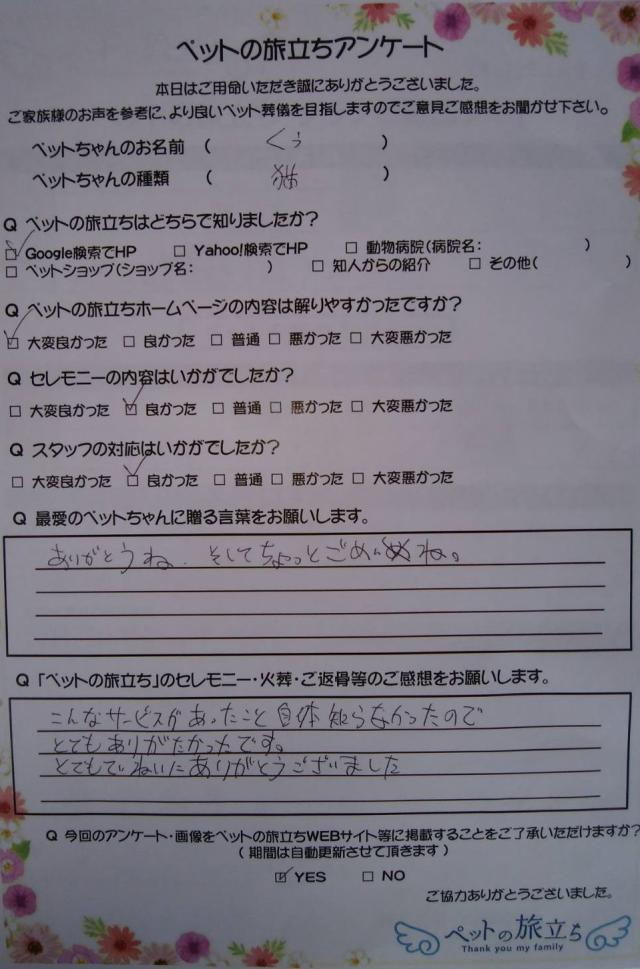 ペットの旅立ちアンケート
本日はご用命いただき誠にありがとうございました。
ご家族様のお声を参考に、より良いペット葬儀を目指しますのでご意見ご感想をお聞かせ下さい。
ペットちゃんのお名前 ( くぅ )
ペットちゃんの種類 ( 猫 )
Q ペットの旅立ちはどちらで知りましたか?
☑ Google検索でHP □ Yahoo!検索でHP □ 動物病院(病院名: )
□ ペットショップ(ショップ名: ) □ 知人からの紹介 □ その他( )
Q ペットの旅立ちホームページの内容は解りやすかったですか?
☑ 大変良かった □ 良かった □ 普通 □ 悪かった □ 大変悪かった
Q セレモニーの内容はいかがでしたか?
□ 大変良かった ☑ 良かった □ 普通 □ 悪かった □ 大変悪かった
Q スタッフの対応はいかがでしたか?
□ 大変良かった ☑ 良かった □ 普通 □ 悪かった □ 大変悪かった
Q 最愛のペットちゃんに贈る言葉をお願いします。
ありがとうね. そしてちょっとごめんね。
Q 「ペットの旅立ち」のセレモニー・火葬・ご返骨等のご感想をお願いします。
こんなサービスがあったこと自体知らなかったので
とてもありがたかったです。
とてもていねいにありがとうございました
Q 今回のアンケート・画像をペットの旅立ちWEBサイト等に掲載することをご了承いただけますか?
( 期間は自動更新させて頂きます )
☑ YES □ NO
ご協力ありがとうございました。
ペットの旅立ち
Thank you my family